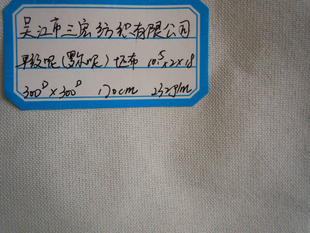 吴江市三宏纺织有限公司
单纹呢(弹尔呢)坯布 105×2×18
300D×300D 170cm 232g/m